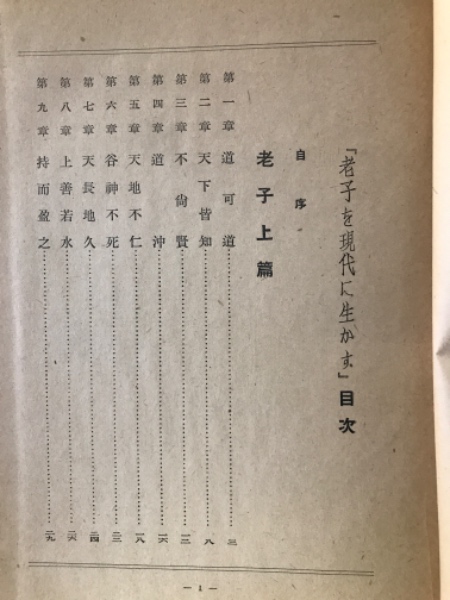 『老子を現代に生かす』目次
自序
老子上篇
第一章 道可道……三
第二章 天下皆知……八
第三章 不尚賢……一三
第四章 道沖……一六
第五章 天地不仁……一八
第六章 谷神不死……二三
第七章 天長地久……二四
第八章 上善若水……二六
第九章 持而盈之……二九
— 1 —